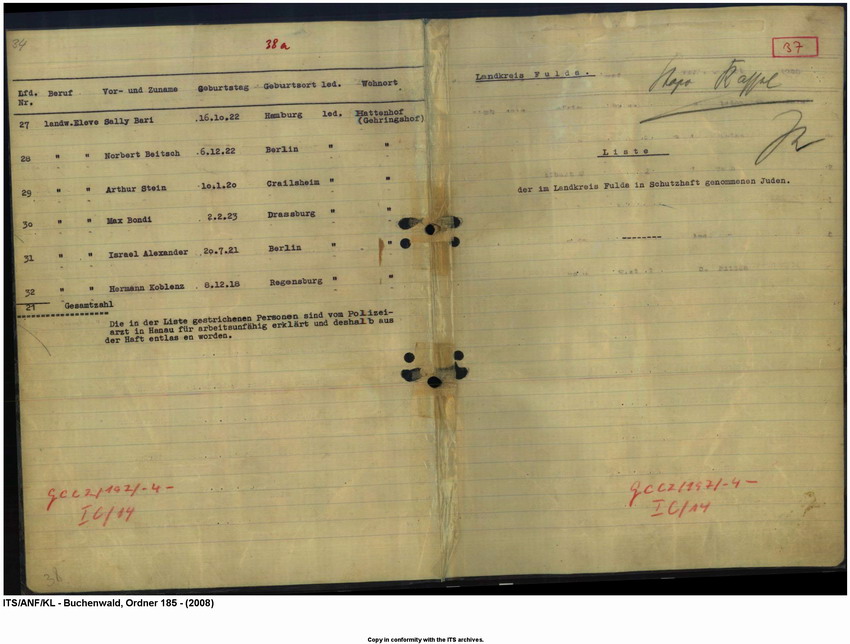 34
38a
Lfd. Beruf Vor- und Zuname Geburtstag Geburtsort led. Wohnort
Nr.
27 landw.Eleve Sally Bari .16.10.22 Hamburg led. Hattenhof
(Gehringshof)
28 " " Norbert Beitsch .6.12.22 Berlin " "
29 " " Arthur Stein .10.1.20 Crailsheim " "
30 " " Max Bondi 2.2.23 Drassburg " "
31 " " Israel Alexander .20.7.21 Berlin " "
32 " " Hermann Koblenz 8.12.18 Regensburg " "
21 Gesamtzahl
Die in der Liste gestrichenen Personen sind vom Polizei-
arzt in Hanau für arbeitsunfähig erklärt und deshalb aus
der Haft entlas en worden.
GCC2/192/-4-
IC/14
38
37
Landkreis Fulda.
Stapo Kassel
Liste
der im Landkreis Fulda in Schutzhaft genommenen Juden.
GCC2/192/-4-
IC/14
ITS/ANF/KL - Buchenwald, Ordner 185 - (2008)
Copy in conformity with the ITS archives.